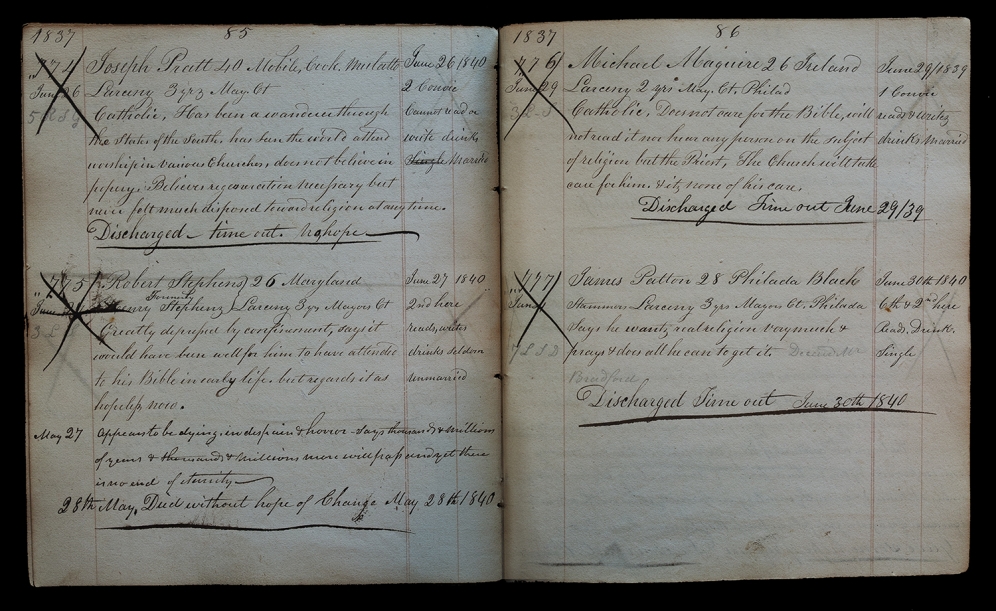 1837 85
774 Joseph Pratt 40 Mobile, Cook Mulatto June 26 1840
June 26 Larceny 3 yrs May. Ct 2 Convic
Catholic, Has been a wanderer through Cannot read or
the States of the South, has seen the world attend write drinks
worship in various Churches, does not believe in Single Married
popery. Believes regeneration necessary but
never felt much disposed toward religion at any time.
Discharged - time out. No hope
775 Robert Stephens 26 Maryland June 27 1840
formerly
June Henry Stephens Larceny 3 yrs Mayors Ct 2nd here
3 L Greatly depressed by confinement, says it reads, writes
would have been well for him to have attended drinks seldom
to his Bible in early life. but regards it as unmarried
hopeless now.
May 27 appears to be dying, in despair & horror - says thousands & millions
of years & thousands & millions more will pass and yet there
is no end of eternity
28th May. Died without hope of Change May 28th 1840
1837 86
776 Michael Maguire 26 Ireland June 29/1839
June 29 Larceny 2 yrs May. Ct. Philad 1 Convic
Catholic, Does not care for the Bible, will reads & writes
not read it nor hear any person on the subject drinks married
of religion but the Priest, The Church will take
care for him. & it, none of his care.
Discharged Time out June 29/39
777 James Patton 28 Philada Black June 30th 1840
June Stammers Larceny 3 yrs Mayors Ct. Philada 6th & 2nd here
Says he wants real religion very much & Read, Drink.
7 L S D prays & does all he can to get it. Single
Bradford
Discharged Time out June 30th 1840